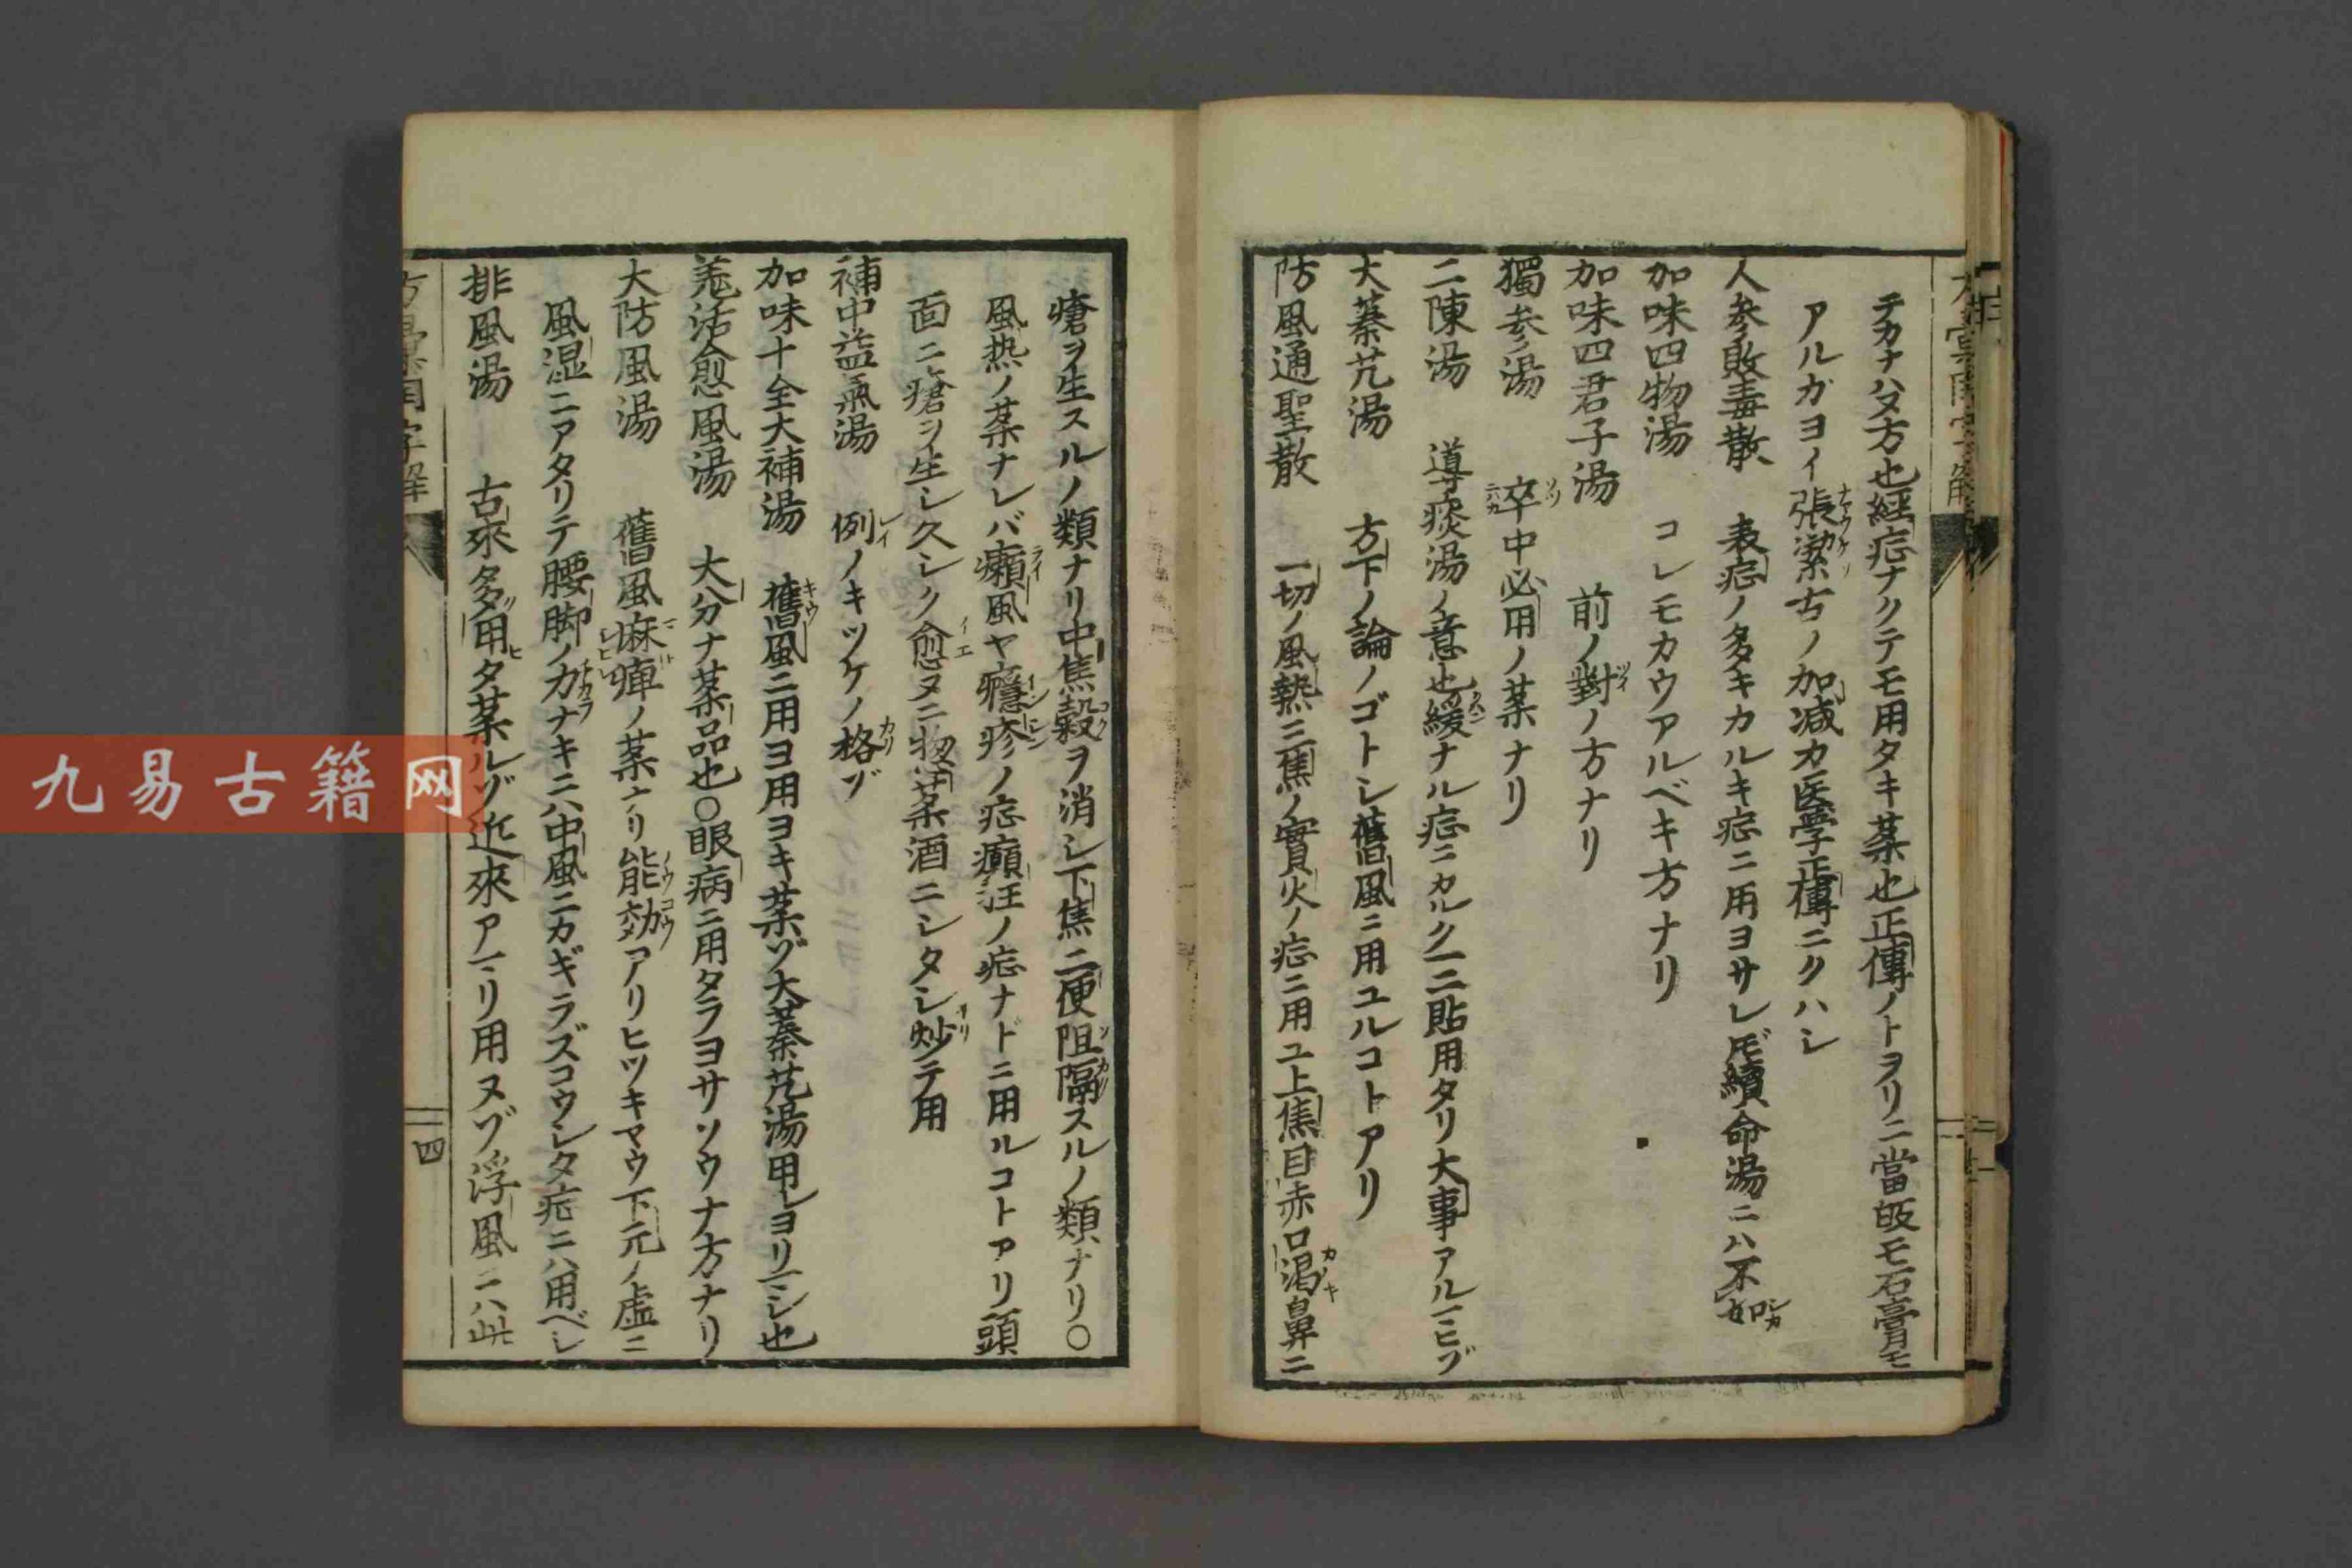 テカナハヌ方也經症ナクテモ用タキ薬也正傳ノトヲリニ當皈モ石膏モ
アルガヨイ張潔古ノ加减カ医学正傳ニクハシ
人参敗毒散 表症ノ多キカルキ症ニ用ヨサレ𪜈續命湯ニハ不如
加味四物湯 コレモカウアルベキ方ナリ
加味四君子湯 前ノ對ノ方ナリ
獨参湯 卒中必用ノ薬ナリ
二陳湯 導痰湯ノ意也緩ナル症ニカルク一二貼用タリ大事アル
大秦艽湯 方下ノ論ノゴトシ舊風ニ用ユルコトアリ
防風通聖散 一切ノ風熱三焦ノ實火ノ症ニ用ユ上焦目赤口渇鼻ニ
瘡ヲ生スルノ類ナリ中焦穀ヲ消シ下焦二便阻隔スルノ類ナリ○
風热ノ薬ナレバ癩風ヤ癮疹ノ症癲狂ノ症ナドニ用ルコトアリ頭
面ニ瘡ヲ生シ久シク愈ヌニ惣薬酒ニシタシ炒テ用
補中益氣湯 例ノキツケノ格ゾ
加味十全大補湯 舊風ニ用ヨ用ヨキ薬ゾ大秦艽湯用シヨリヿシ也
羌活愈風湯 大分ナ薬品也○眼病ニ用タラヨサソウナ方ナリ
大防風湯 舊風麻痺ノ薬ナリ能効アリヒツキマウ下元ノ虚ニ
風湿ニアタリテ腰脚ノ力ナキニハ中風ニカギラズコウシタ症ニハ用ベシ
排風湯 古來多用タ薬ルゾ近來アヿリ用ヌゾ浮風ニハ此
四
九易古籍网